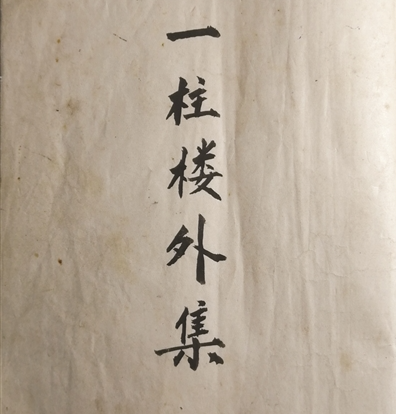 一柱楼外集